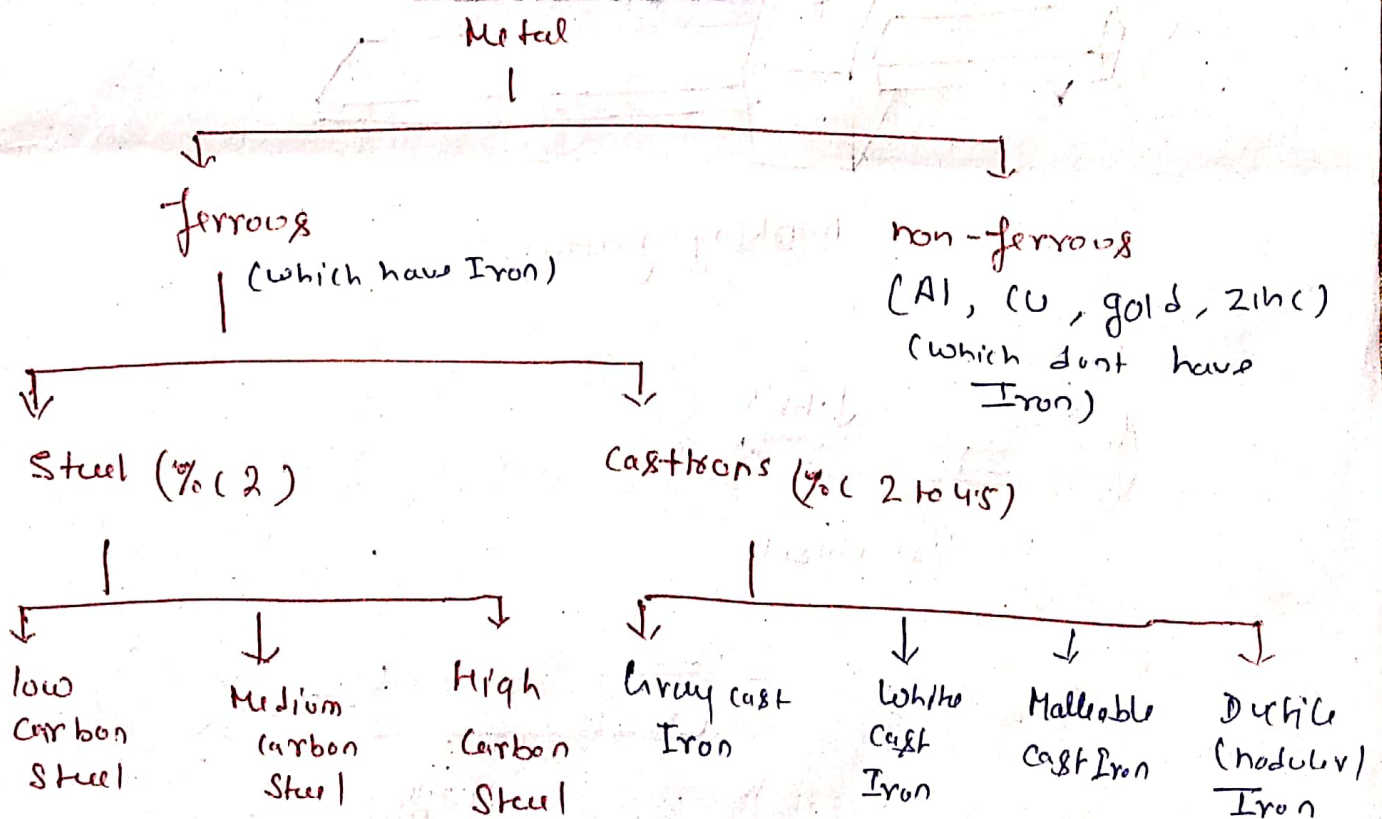 Metal
ferrous
(which have Iron)
non-ferrous
(Al, Cu, gold, zinc)
(which dont have
Iron)
Steel (% C 2)
Cast Irons (% C 2 to 4.5)
low
carbon
Steel
Medium
carbon
Steel
High
Carbon
Steel
Gray cast
Iron
White
Cast
Iron
Malleable
Cast Iron
Ductile
(nodular)
Iron